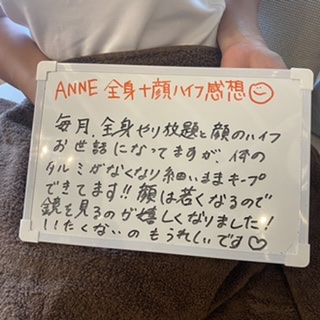 ANNE 全身+顔ハイフ感想☺
毎月、全身やり放題と顔のハイフ
お世話になってますが、体の
タルミがなくなり細いままキープ
できてます!!顔は若くなるので
鏡を見るのが嬉しくなりました!
いたくないのもうれしいです♡